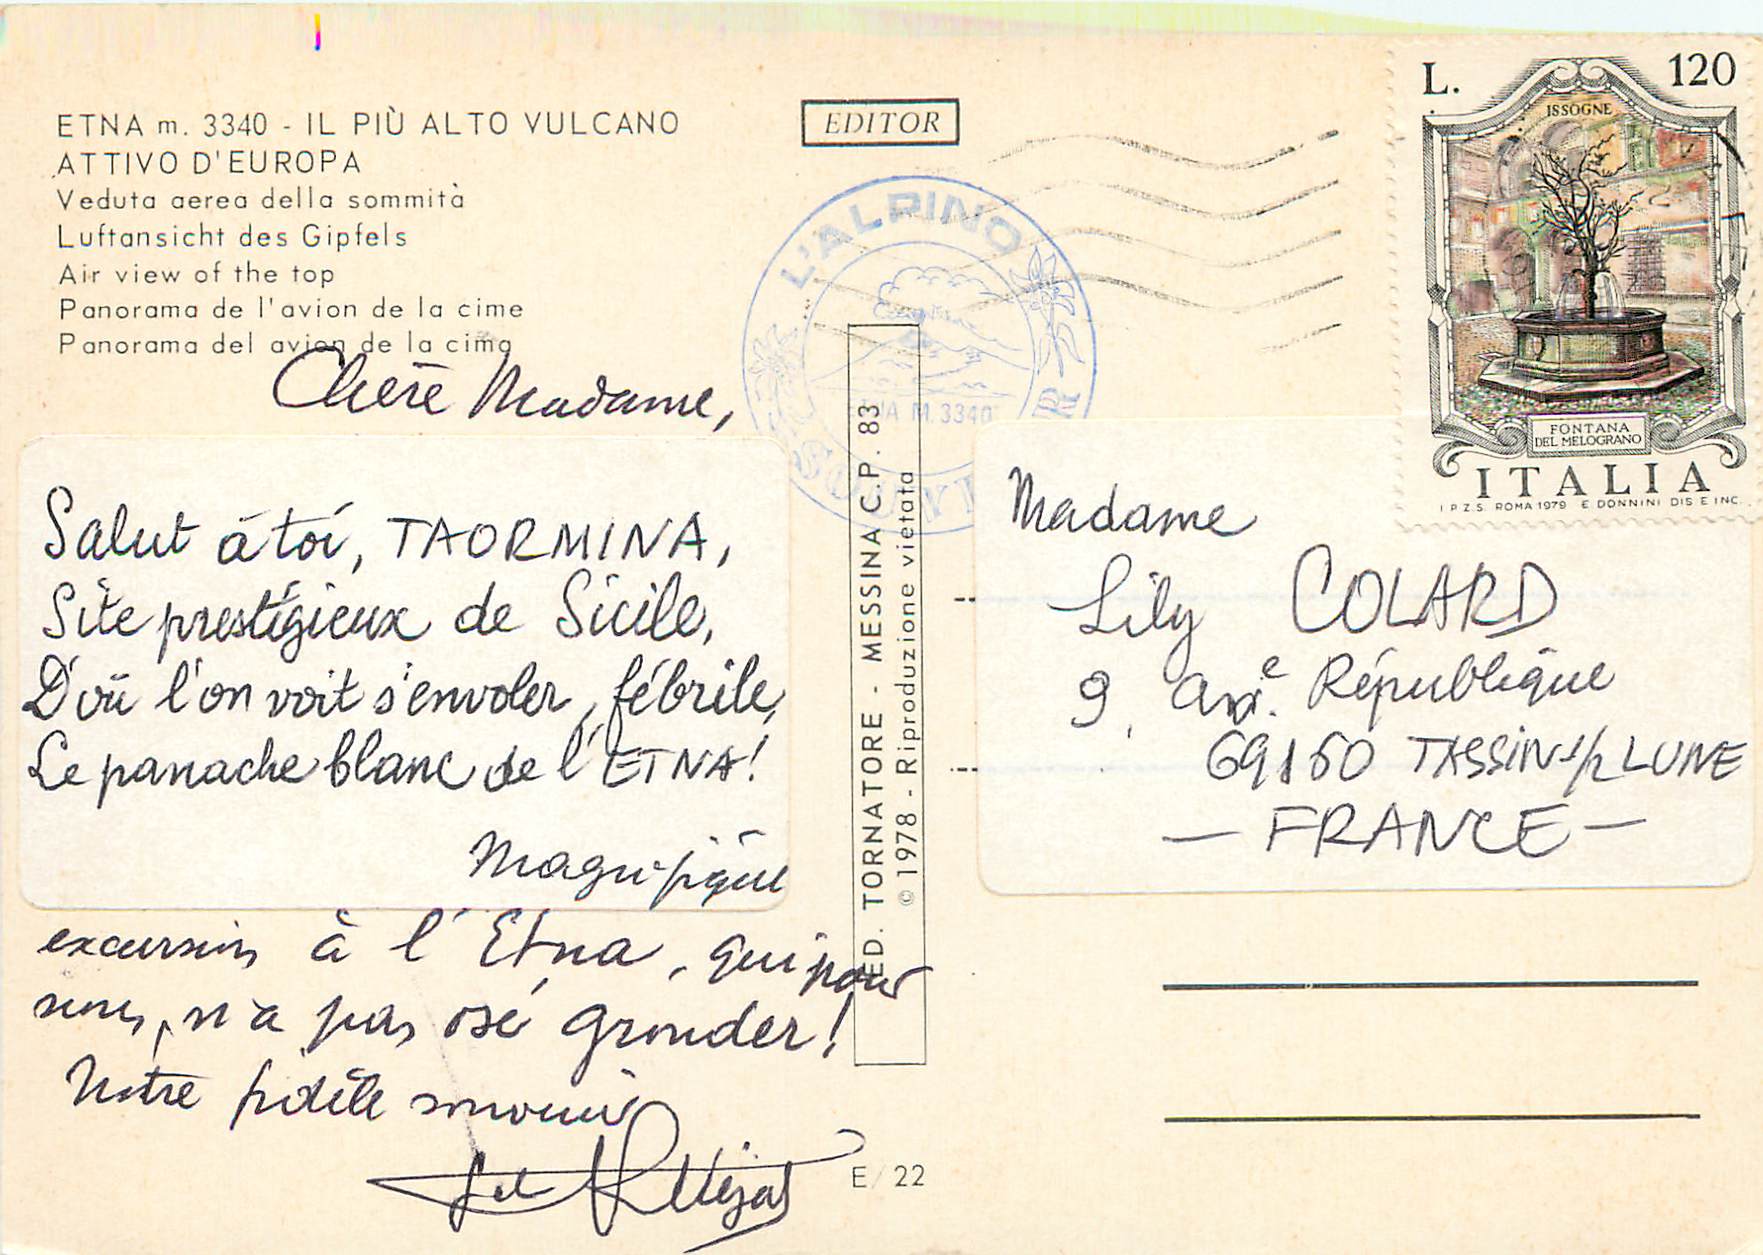 ETNA m. 3340 - IL PIÙ ALTO VULCANO
ATTIVO D'EUROPA
Veduta aerea della sommità
Luftansicht des Gipfels
Air view of the top
Panorama de l'avion de la cime
Panorama del avion de la cima
EDITOR
L'ALPINO
ETNA M. 3340
SOUVENIR
L. 120
ISSOGNE
FONTANA
DEL MELOGRANO
ITALIA
I.P.Z.S. ROMA 1979 E DONNINI DIS E INC.
Chère Madame,
Salut à toi, TAORMINA,
Site prestigieux de Sicile,
D'où l'on voit s'envoler, fébrile,
Le panache blanc de l'ETNA!
Magnifique
excursion à l'Etna, qui pour
nous, n'a pas osé gronder!
Notre fidèle souvenir
ED. TORNATORE - MESSINA C.P. 83
© 1978 - Riproduzione vietata
E/22
Madame
Lily COLARD
9, Ave. République
69160 TASSIN s/r LUNE
- FRANCE -